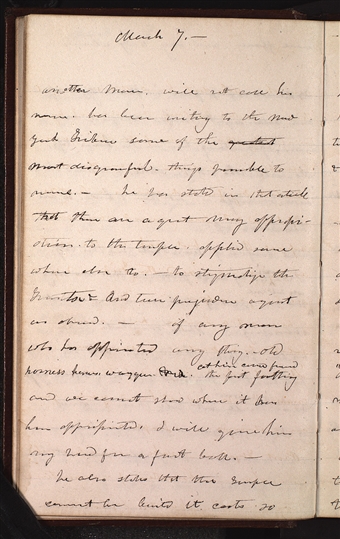 March 7. —
another man, will not call his
name. has been writing to the New
York Tribune some of the greatest
most disgraceful things possible to
name. — he has stated in that article
that there are a great many appropri-
ations to the temple applied some
where else &c. — to stigmatize the
Trustees And turn prejudice against
us abroad. — if any man
who has appropriated any thing. old
harness horses waggon &c. let him come forward
the first farthing
and we cannot show where it has
been appropriated, I will give him
my head for a foot ball. —
he also states that the Temple
cannot be build it costs so